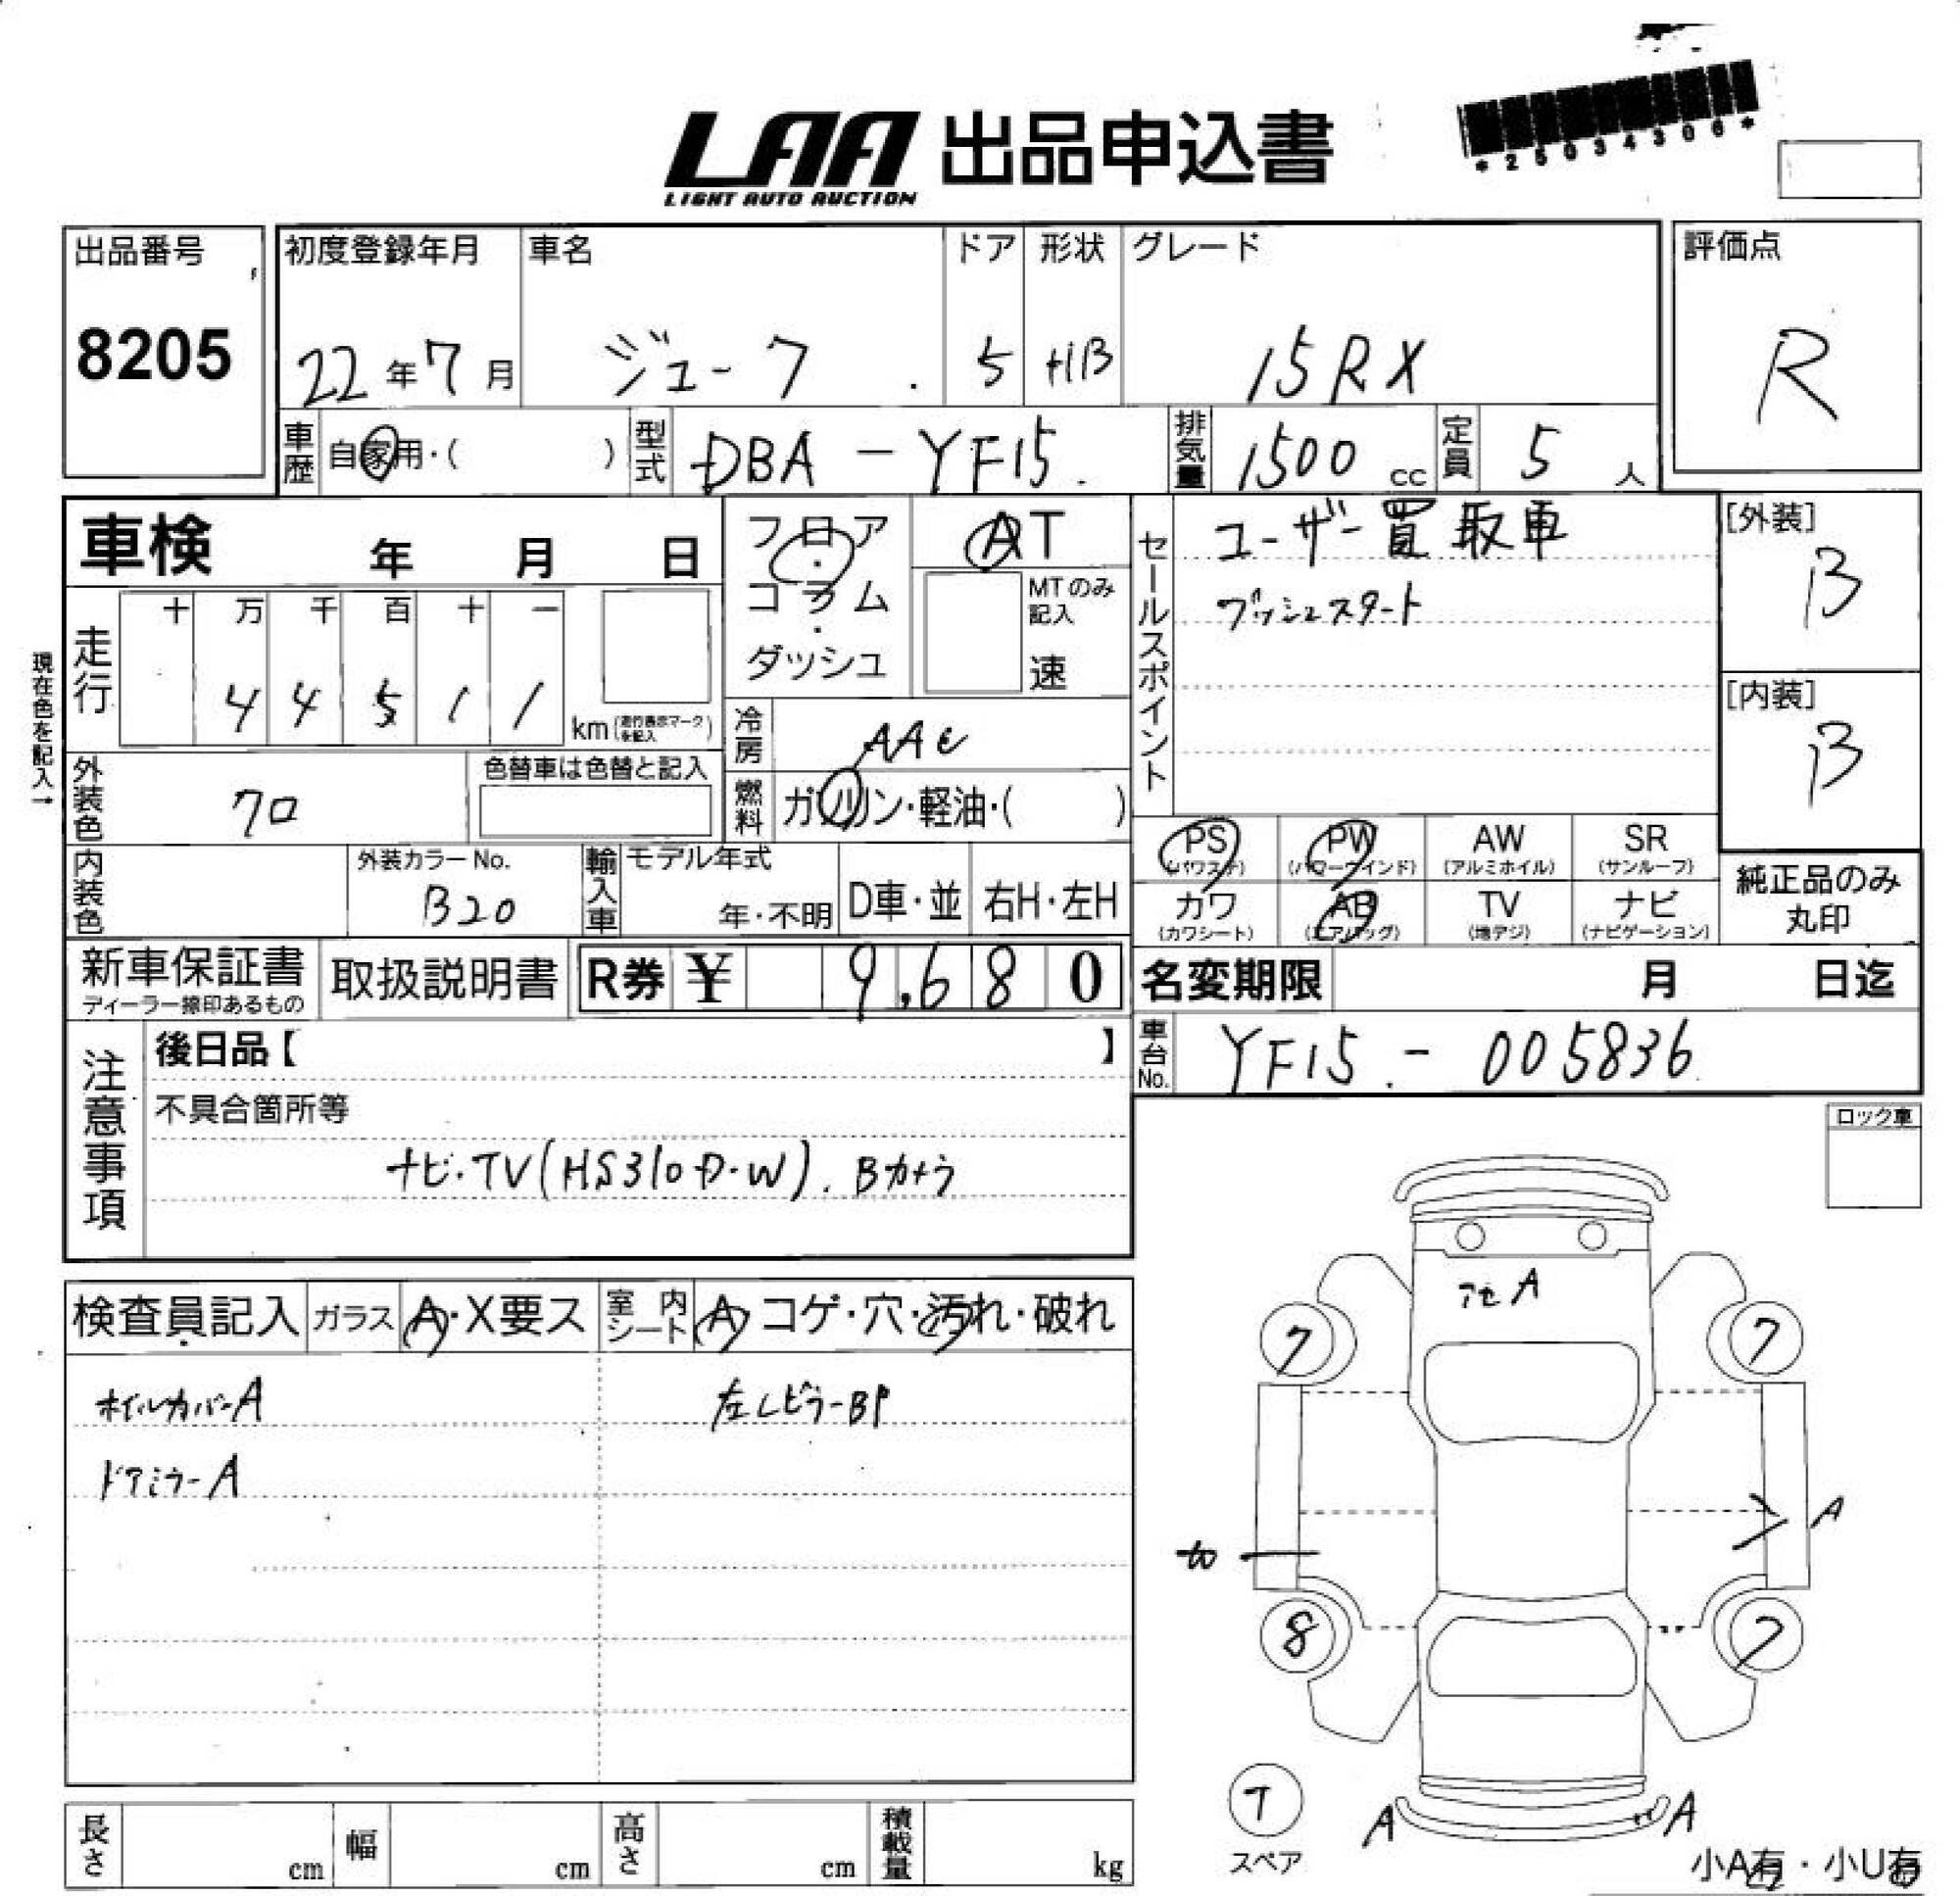 LAA 出品申込書
LIGHT AUTO AUCTION
*25034306*
出品番号
8205
初度登録年月
22年7月
車名
ジューク
ドア
5
形状
HB
グレード
15RX
評価点
R
車歴 自家用・( )
型式 DBA-YF15
排気量 1500cc
定員 5人
車検 年 月 日
フロア・コラム・ダッシュ
AT
MTのみ記入
速
セールスポイント
ユーザー買取車
プッシュスタート
[外装]
B
[内装]
B
現在色を記入→
走行
十 万 千 百 十 一
4 4 5 1 1
km(走行表示マークを記入)
冷房 AAC
燃料 ガソリン・軽油・( )
外装色 クロ
色替車は色替と記入
内装色
外装カラーNo.
B20
輸入車 モデル年式
年・不明
D車・並
右H・左H
PS (パワステ)
PW (パワーウインド)
AW (アルミホイル)
SR (サンルーフ)
カワ (カワシート)
AB (エアバッグ)
TV (地デジ)
ナビ (ナビゲーション)
純正品のみ
丸印
新車保証書
ディーラー捺印あるもの
取扱説明書
R券 ¥ 9,680
名変期限 月 日迄
車台No. YF15-005836
注意事項
後日品【 】
不具合箇所等
ナビ・TV(HS310D・W).Bカメラ
ロック車
検査員記入
ガラス A・X要ス
室内シート A・コゲ・穴・汚れ・破れ
ホイルカバーA
左Cピラー BP
ドアミラーA
アセA
7
7
A
8
7
T
スペア
A
A
長さ cm
幅 cm
高さ cm
積載量 kg
小A有・小U有